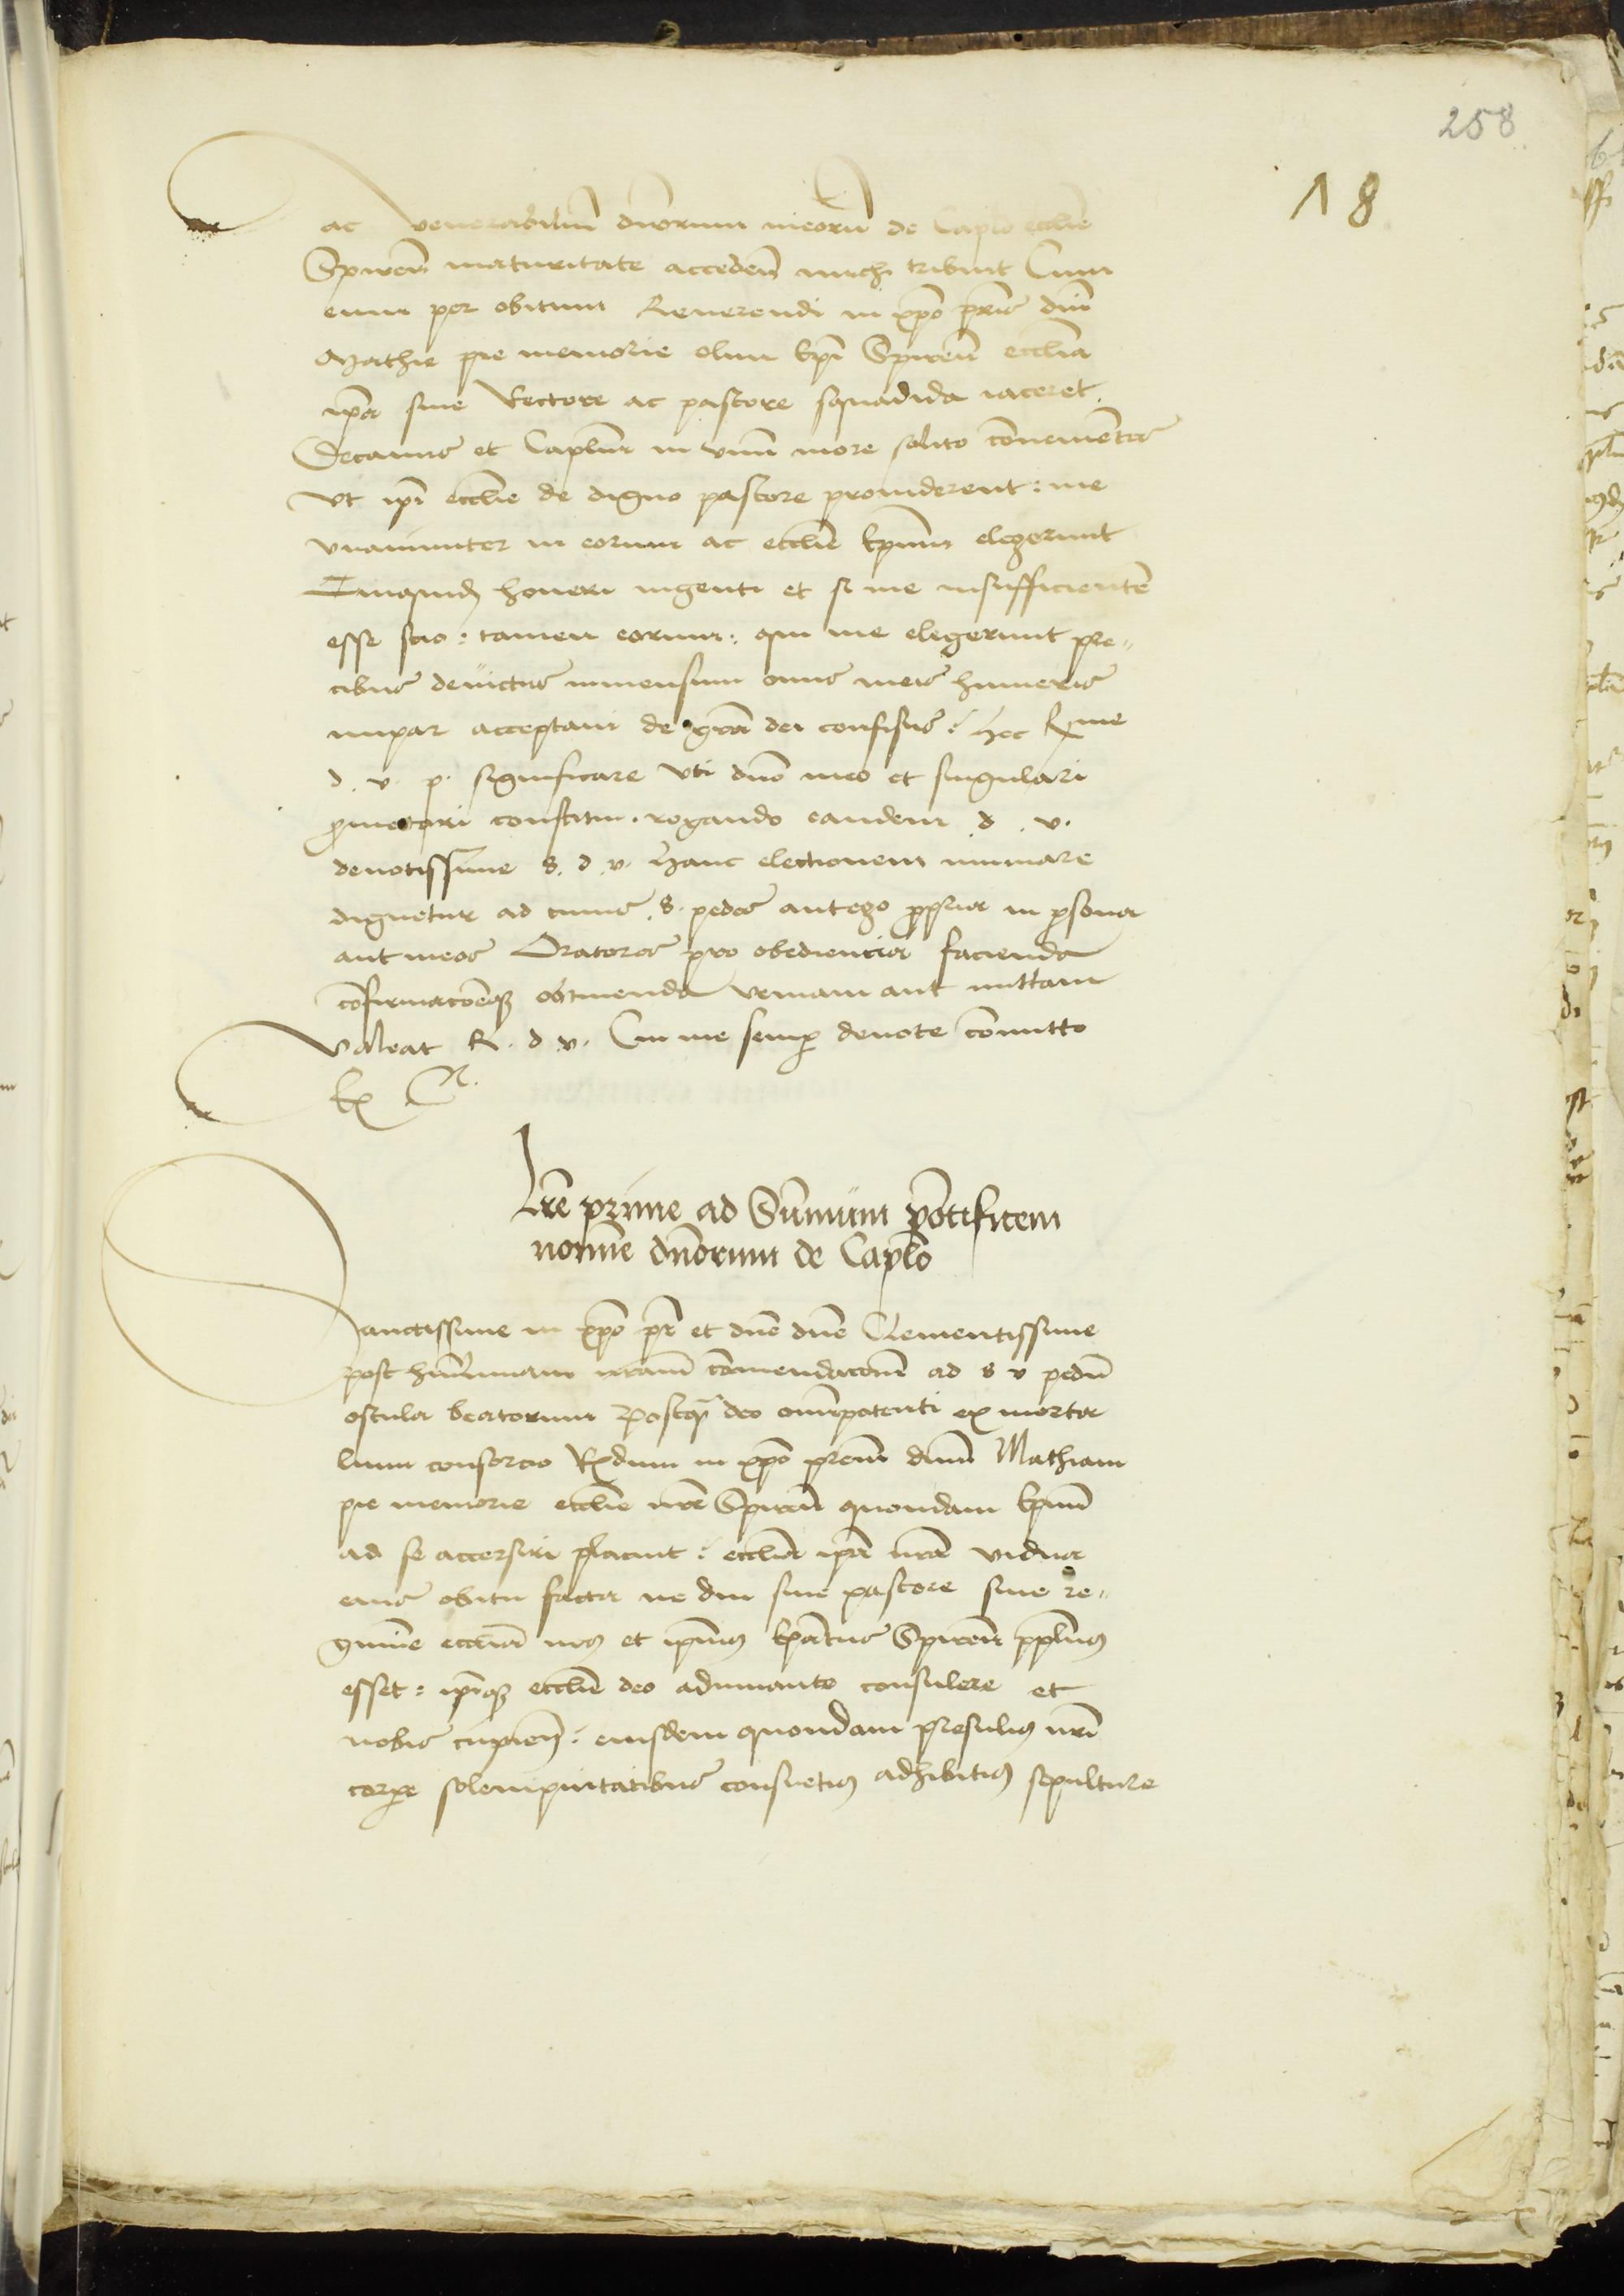 258
18
ac venerabiliu̅ dn̅orum meoru̅ de Caplo eccl̅ie
Spiren̅ maturitate acceden̅ michi tribuit Cum
enim per obitum Reuerendi in xp̅o pr̅is dn̅i
Mathie pie memorie olim Ep̅i Spiren̅ eccl̅ia
ip̅a sine Rectore ac pastore squadida iaceret.
Decanus et Capl̅m in vnu̅ more solito co̅uenientes
vt ip̅i eccl̅ie de digno pastore prouiderent: me
vnanimiter in eorum ac eccl̅ie Ep̅um elegerunt
honeri ingenti et si me insufficiente̅
esse scio: tamen eorum: qui me elegerunt pre„
cibus deuictus inmensum onus meis humeris
impar acceptaui de gr̅a dei confisus: hec R me
d. v. p. significare vti dn̅o meo et singulari
p̱motori constitui. rogando eandem d. v.
deuotissime s. d. v. hanc electionem
dignetur ad cuius. s. pedes aut ego p̱pria in p̱sona
aut meos Oratores pro obediencia facienda
co̅firmac̅o̅e̅qꝫ obtinenda veniam aut mittam
Valeat R. d. v. Cui me semp̱ deuote co̅mitto
Ex
Lr̅e prime ad Su̅mum po̅tificem
nomi̅e dn̅orum de Caplo
Sanctissime in xp̅o pr̅ et dn̅e dn̅e Clementissime
post humillimam nr̅am co̅mendaco̅m ad s v pedu̅
oscula beatorum Postq̅ deo omi̅potenti ex morta
lium consorcio Rdum in xp̅o pr̅em dn̅m Mathiam
pie memorie eccl̅ie nr̅e Spiren̅ quondam Ep̅um
ad se accersiri placuit: eccl̅ia ip̅a nr̅a vidua
eius obitu facta ne diu sine pastore sine re„
gimi̅e eccl̅ia et Ep̅atus Spiren̅
esset: ip̅iqꝫ eccl̅ie deo adiuuante consulere et
nobis cupien̅: eiusdem quondam presulis nr̅i
corp̱e solempnitatibus consuetis adhibitis sepulture